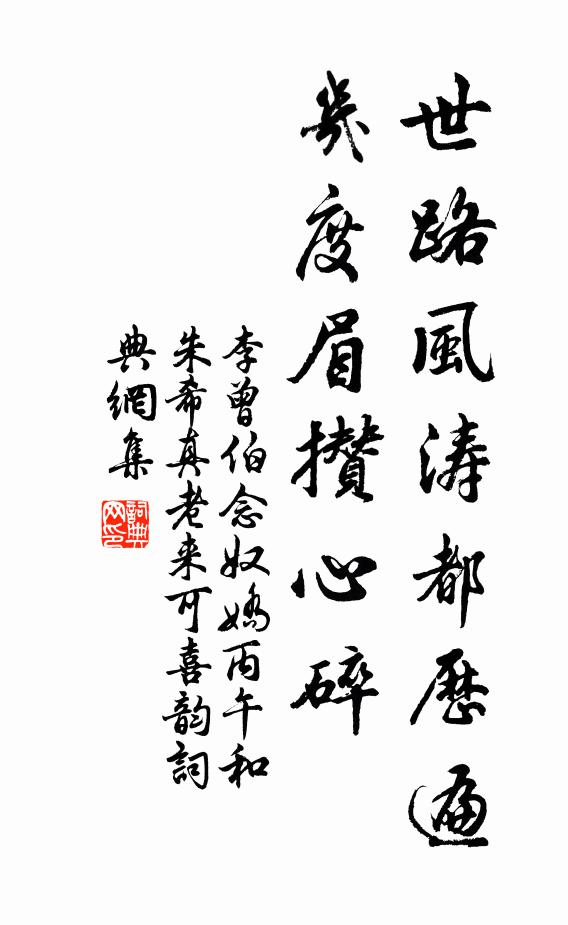 世路風涛都歷遍
幾度眉攢心碎
李曾伯念奴嬌丙午和
朱希真老来可喜韵詞
典網集
詞典
网印